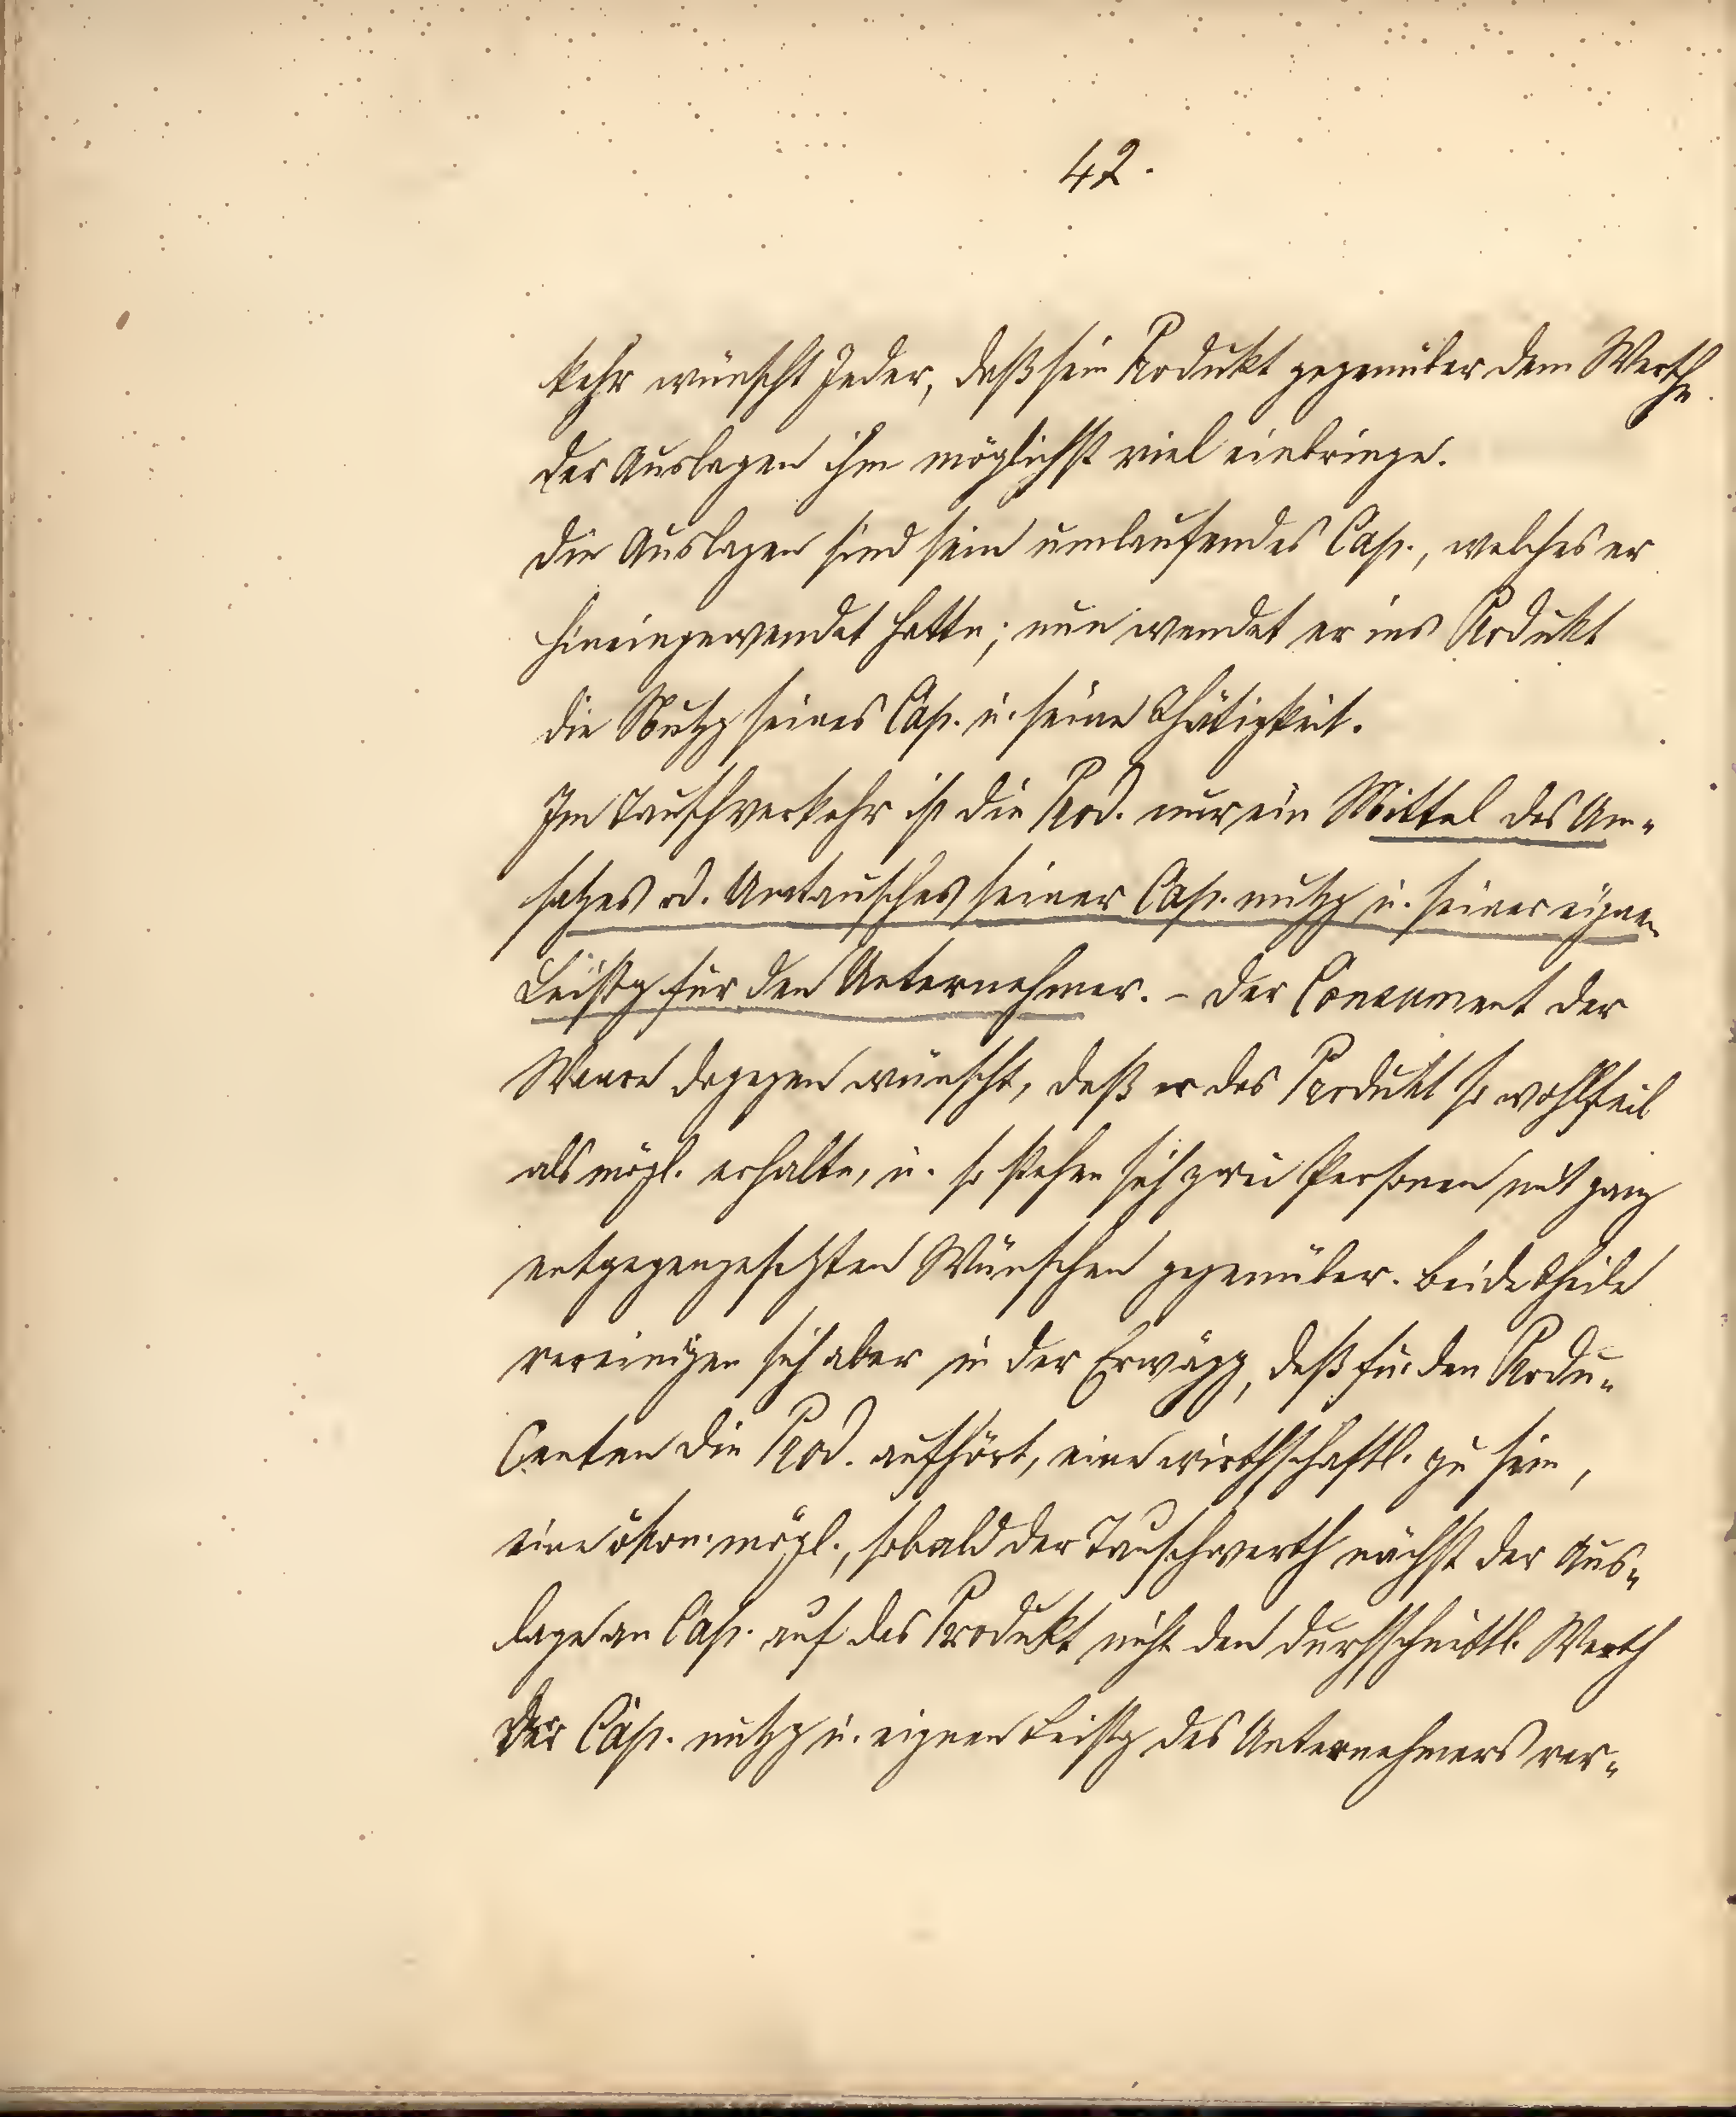 42.
kehr wünscht Jeder, daß sein Produkt gegenüber dem Werthe
der Auslagen ihm möglichst viel einbringe.
Die Auslagen sind sein umlaufendes Cap., welches er
hineingewendet hatte; nun wendet er ins Produkt
die Nutzg seines Cap. u. seine Thätigkeit.
Im Tauschverkehr ist die Prod. nur ein Mittel des Um-
satzes od. Umtausches seiner Cap. nutzg u. seiner eignen
Leistg für den Unternehmer. – Der Consument der
Waare dagegen wünscht, daß er das Produkt so wohlfeil
als mögl. erhalte, u. so stehen sich zwei Personen mit ganz
entgegengesetzten Wünschen gegenüber. Beide Theile
vereinigen sich aber in der Erwägg, daß für den Produ-
centen die Prod. aufhört, eine wirthschaftl. zu sein,
eine ökon. mögl., sobald der Tauschwerth nächst der Aus-
lage an Cap. auf das Produkt nicht den durchschnittl. Werth
der Cap. nutzg u. eignen Leistg des Unternehmers ver-